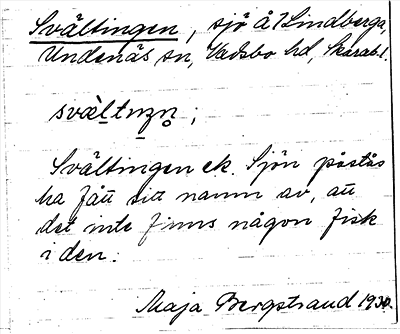 Svältingen, sjö å Lindberga,
Undenäs sn, Vadsbo hd, Skarab. l.
svæltıŋņ ;
Svältingen ek. Sjön påstås
ha fått sitt namn av, att
det inte finns någon fisk
i den.
Maja Bergstrand 1930.